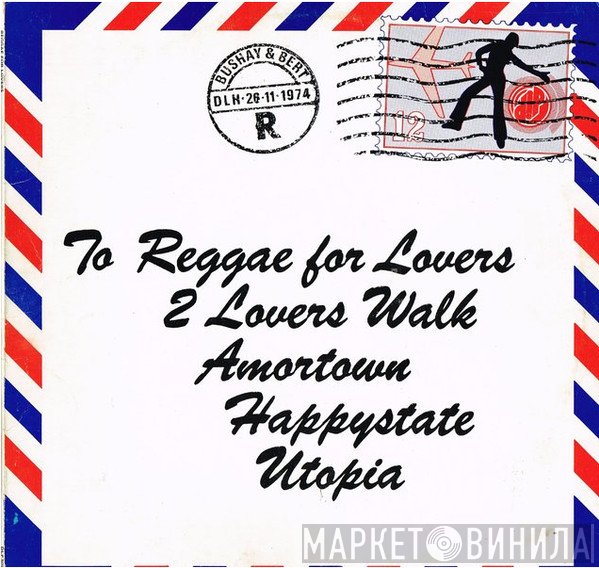 BUSHAY & BERT
DLH·26·11·1974
R
12
To Reggae for Lovers
2 Lovers Walk
Amortown
Happystate
Utopia
МАРКЕТ ВИНИЛА